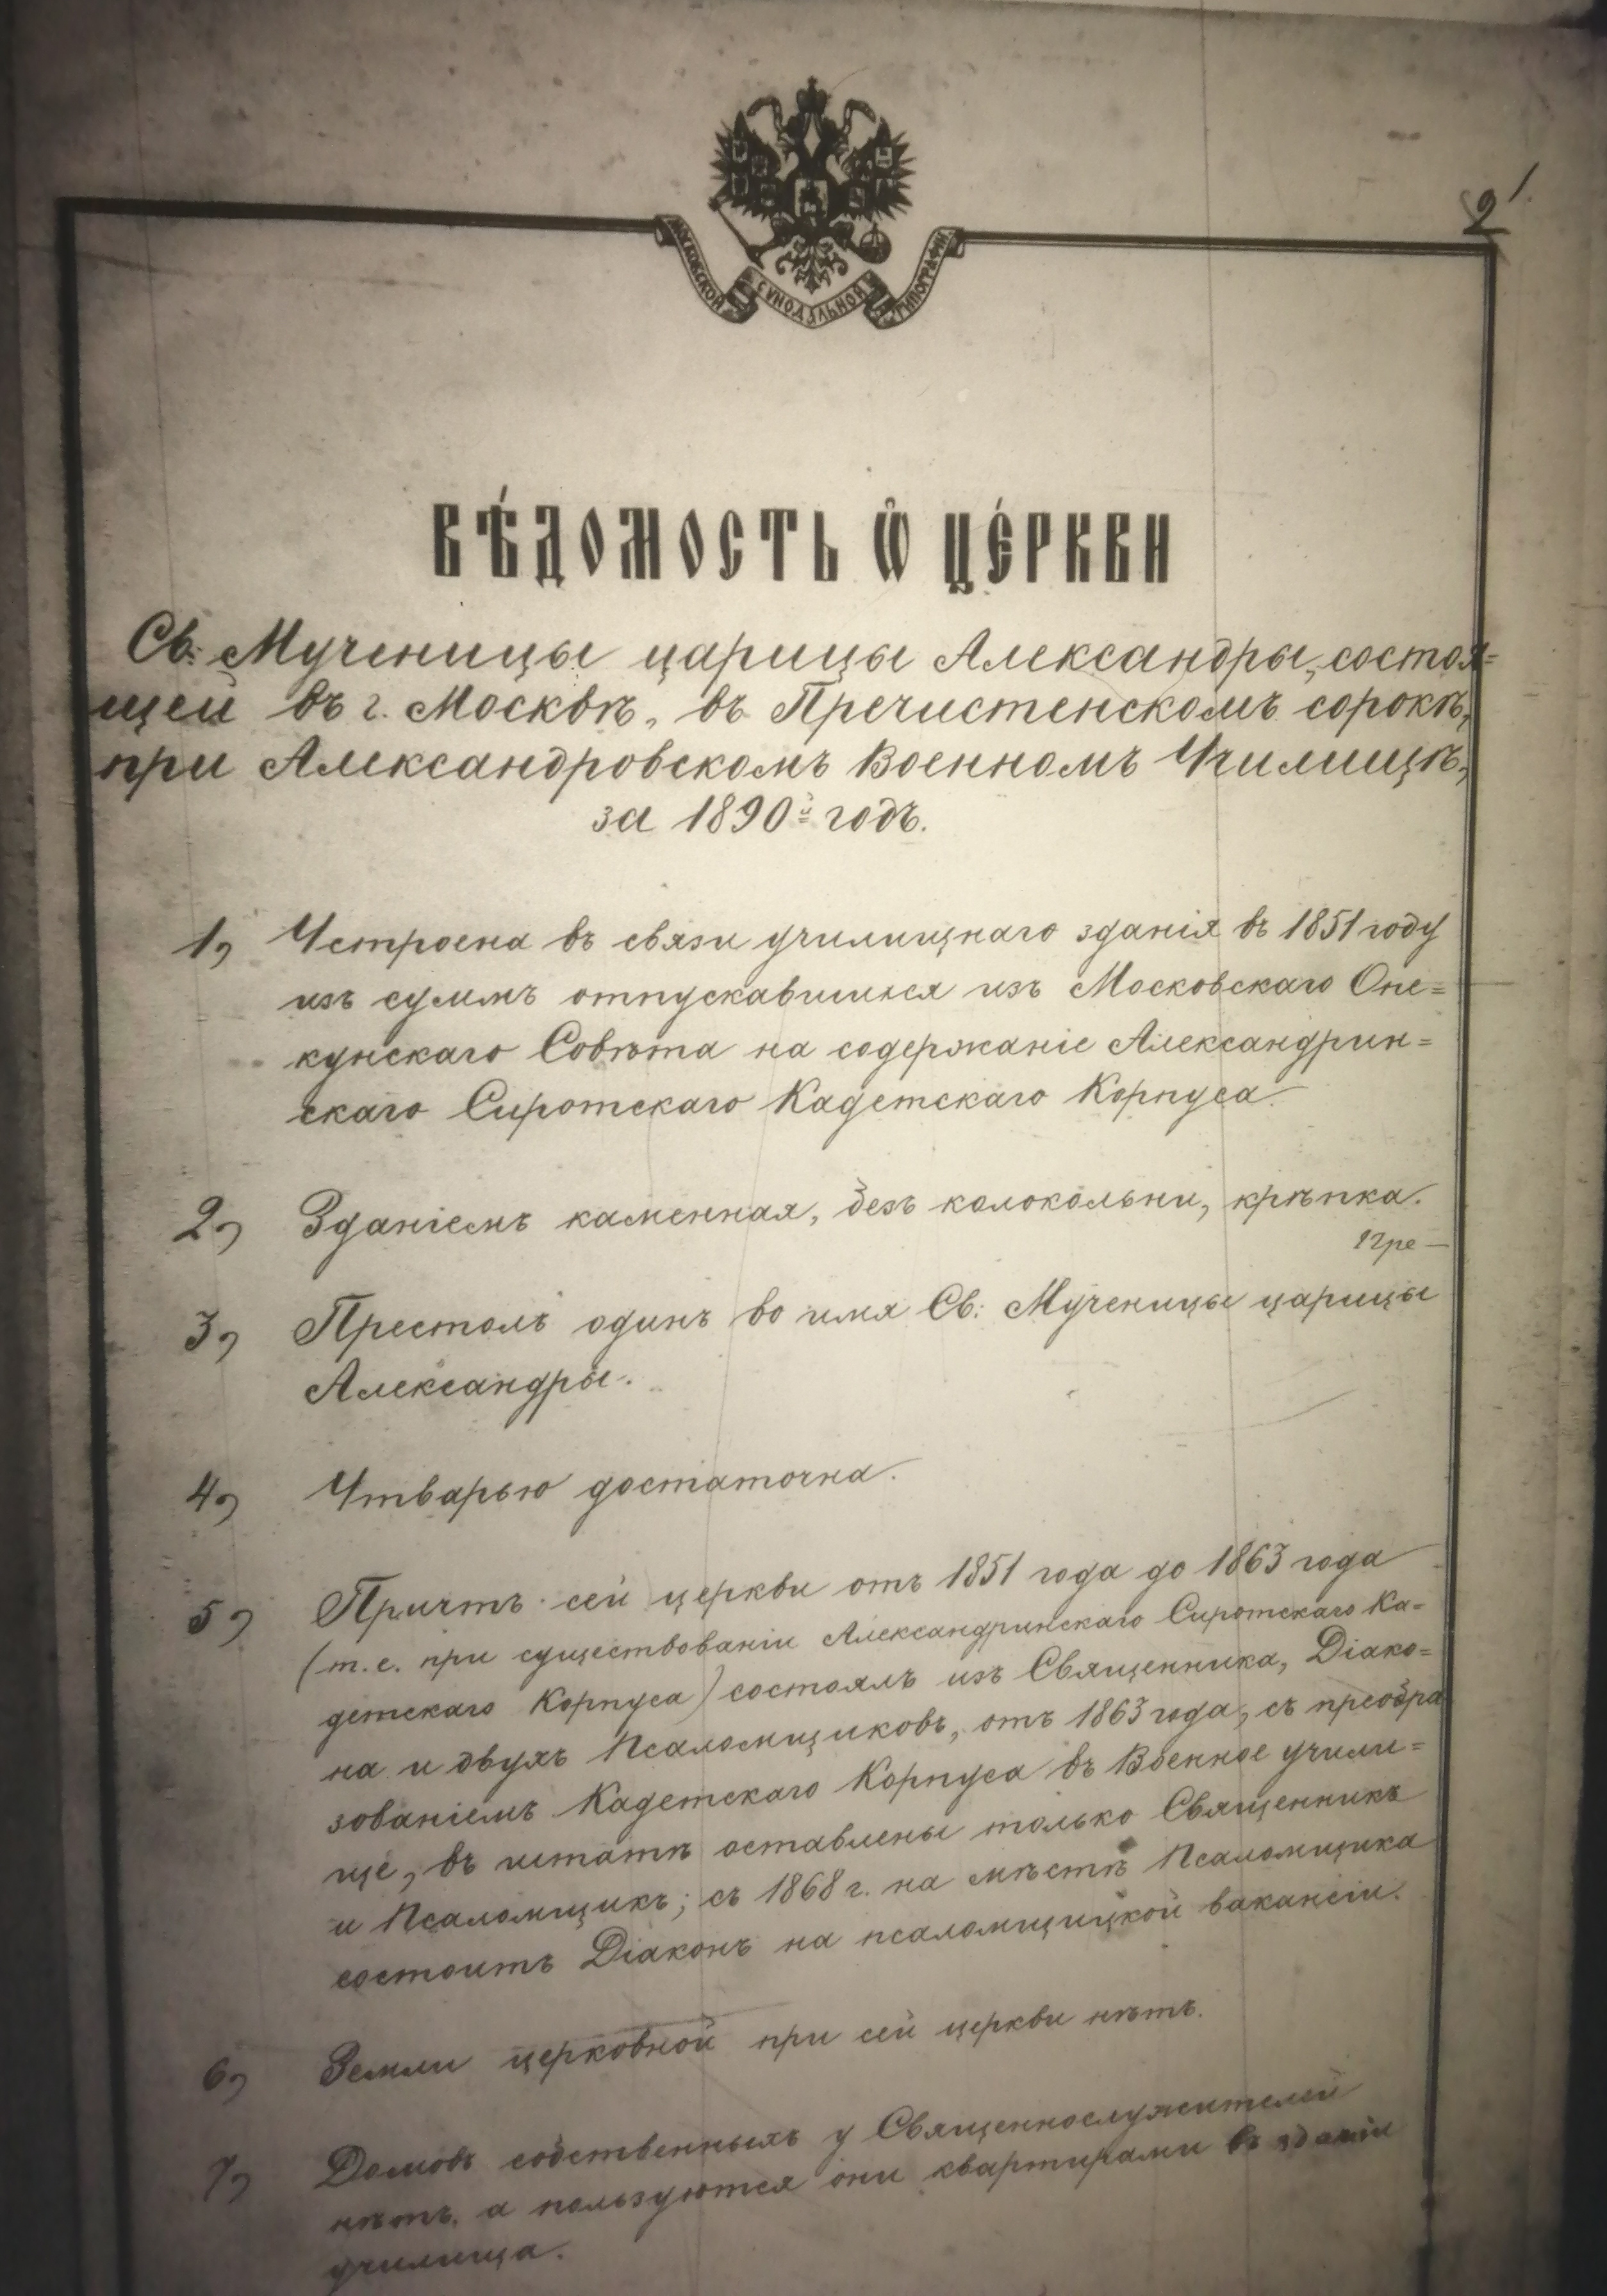 2
МОСКОВСКОЙ СѴНОДАЛЬНОЙ ТИПОГРАФІИ
ВѢ́ДОМОСТЬ Ѽ ЦЕ́РКВИ
Св: Мученицы царицы Александры, состоя=
щей въ г. Москвѣ, въ Пречистенскомъ сорокѣ,
при Александровскомъ Военномъ Училищѣ,
за 1890й годъ.
1, Устроена въ связи училищнаго зданія въ 1851 году
изъ суммъ отпускавшихся изъ Московскаго Опе=
кунскаго Совѣта на содержаніе Александрин=
скаго Сиротскаго Кадетскаго Корпуса.
2, Зданіемъ каменная, безъ колокольни, крѣпка.
3, Престолъ одинъ во имя Св: Мученицы царицы
Александры.
4, Утварью достаточна.
5, Причтъ сей церкви отъ 1851 года до 1863 года
(т.е. при существованіи Александринскаго Сиротскаго Ка=
детскаго Корпуса) состоялъ изъ Священника, Діако=
на и двухъ Псаломщиковъ, отъ 1863 года, съ преобра
зованіемъ Кадетскаго Корпуса въ Военное учили=
ще, въ штатѣ оставлены только Священникъ
и Псаломщикъ; съ 1868 г. на мѣстѣ Псаломщика
состоитъ Діаконъ на псаломщицкой вакансіи.
6, Земли церковной при сей церкви нѣтъ.
7, Домовъ собственныхъ у Священнослужителей
нѣтъ, а пользуются они квартирами въ зданіи
училища.